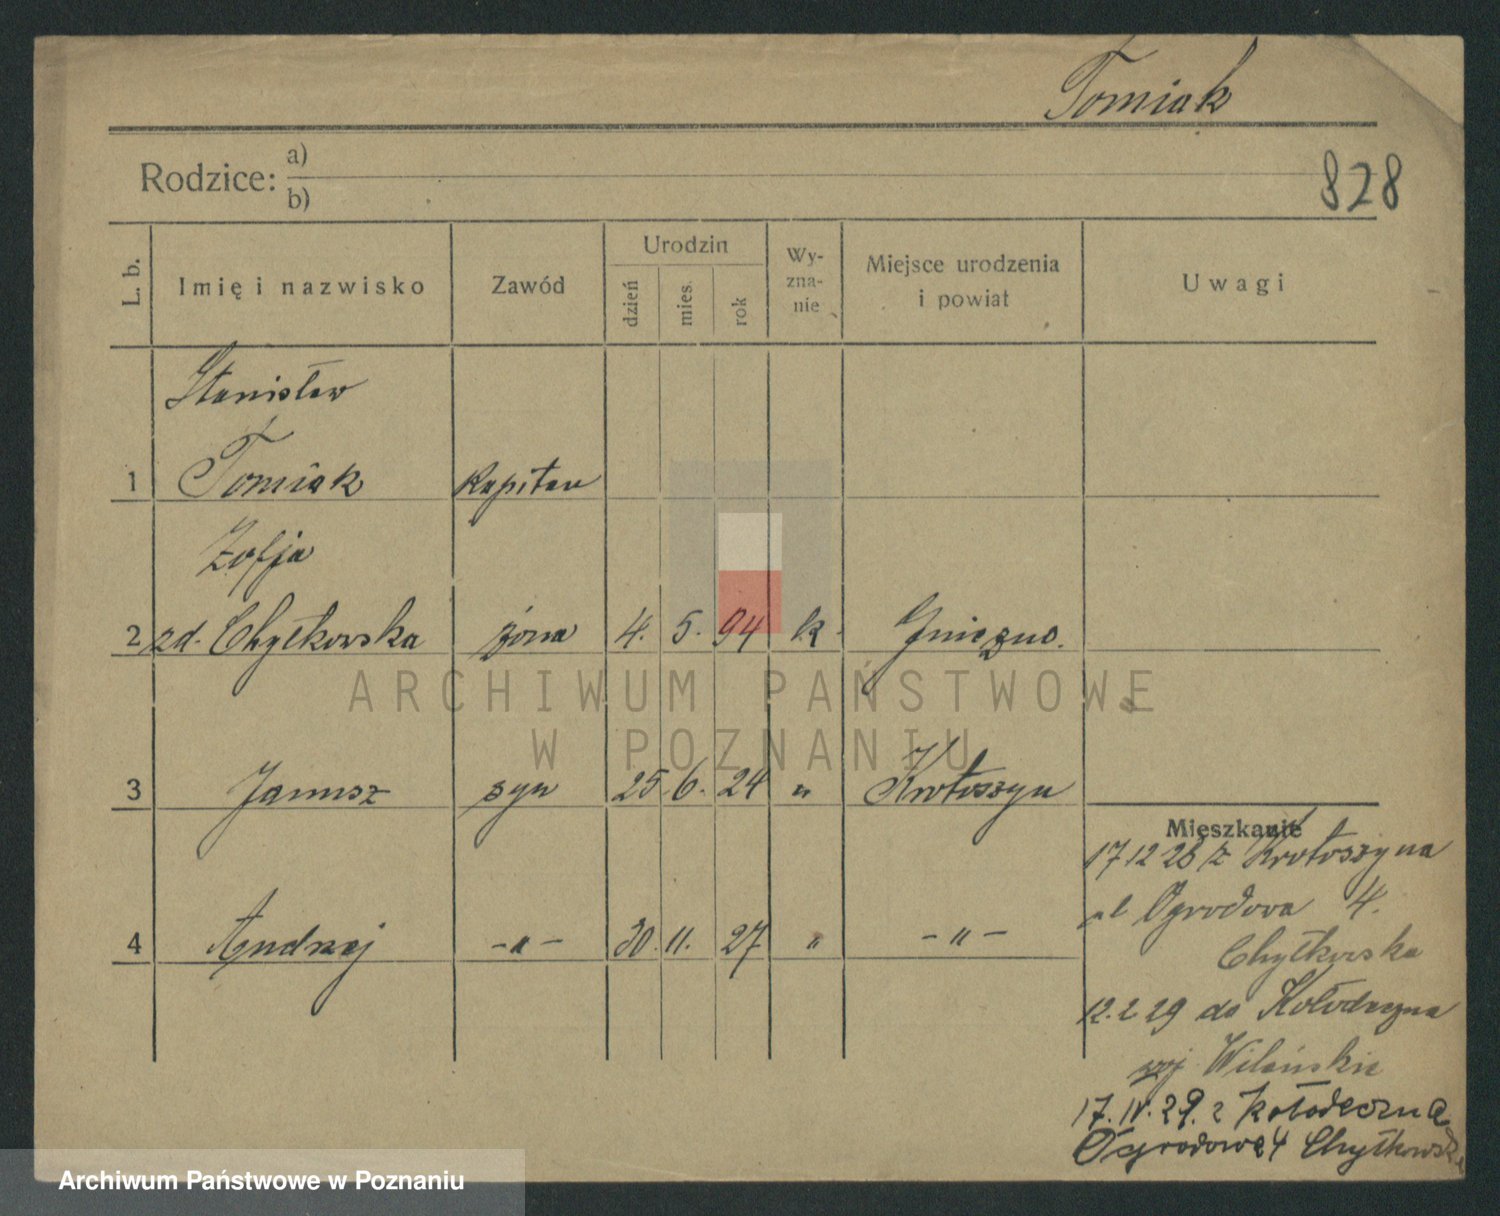 Tomiak
Rodzice: a)
b)
828
L. b.
Imię i nazwisko
Zawód
Urodzin
dzień
mies.
rok
Wy-
zna-
nie
Miejsce urodzenia
i powiat
Uwagi
Stanisław
1 Tomiak kapitan
Zofja
2 zd. Chyłkowska żona 4. 5. 94 k. Gniezno.
3 Janusz syn 25. 6. 24 " Krotoszyn
4 Andrzej -"- 30. 11. 27 " -"-
Mieszkanie
17 12 28 z Krotoszyna
ul Ogrodowa 4.
Chyłkowska
12. 2 29 do
woj Wileńskie
17. IV. 29. z
Ogrodowa 4 Chyłkowska
ARCHIWUM PAŃSTWOWE
W POZNANIU
Archiwum Państwowe w Poznaniu